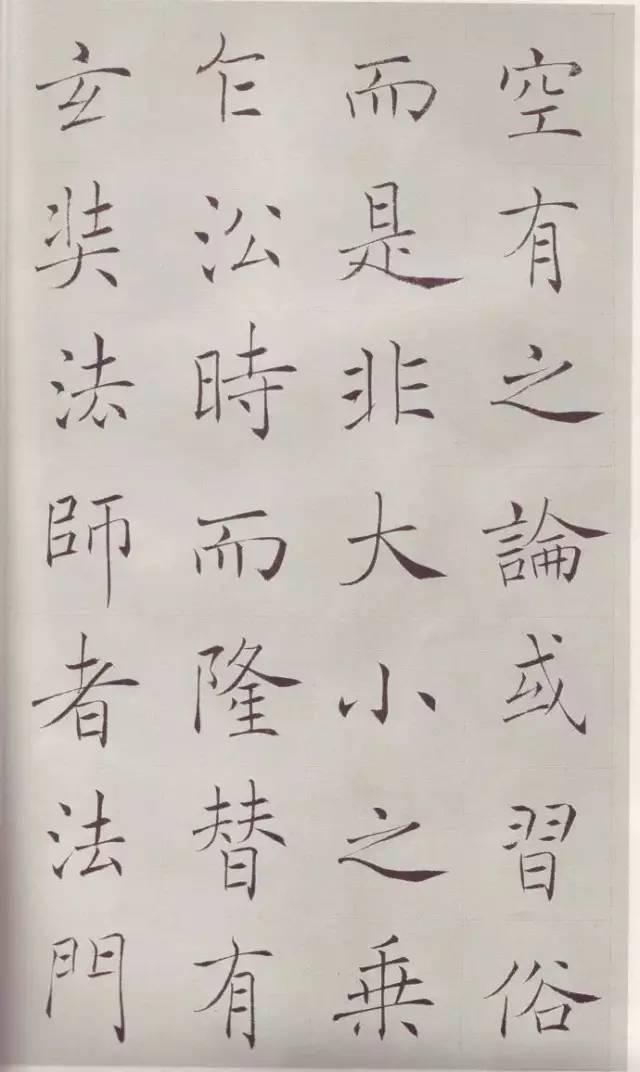 空有之論或習俗
而是非大小之乗
乍沿時而隆替有
玄奘法師者法門